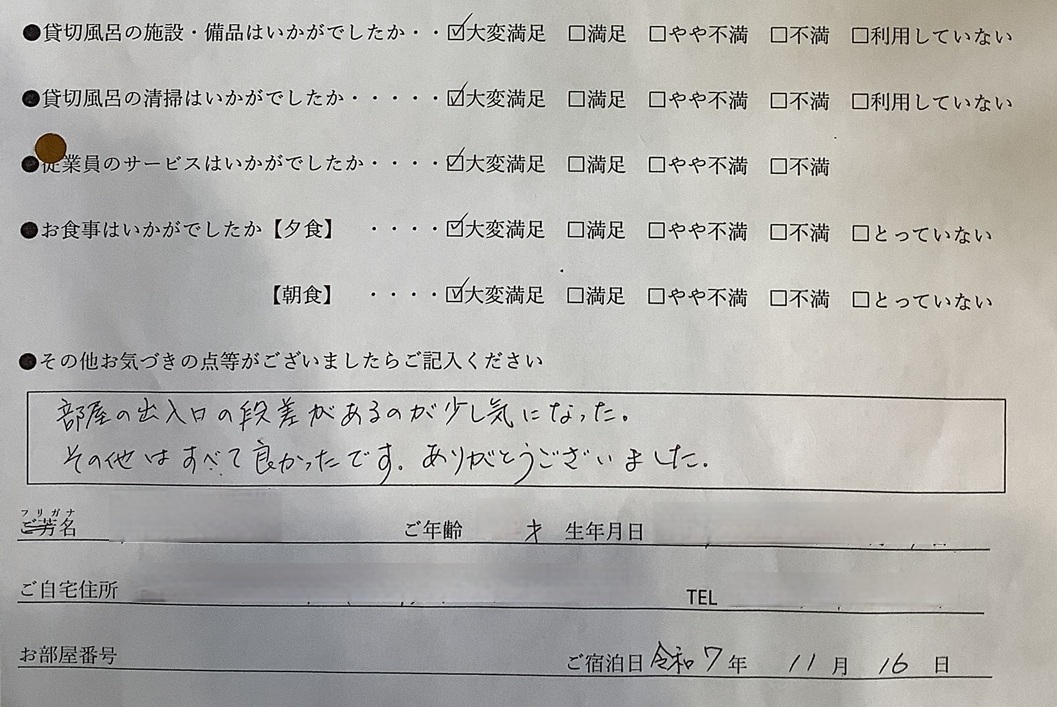 ●貸切風呂の施設・備品はいかがでしたか・・☑大変満足 □満足 □やや不満 □不満 □利用していない
●貸切風呂の清掃はいかがでしたか・・・・・☑大変満足 □満足 □やや不満 □不満 □利用していない
●従業員のサービスはいかがでしたか・・・・☑大変満足 □満足 □やや不満 □不満
●お食事はいかがでしたか【夕食】 ・・・・☑大変満足 □満足 □やや不満 □不満 □とっていない
【朝食】 ・・・・☑大変満足 □満足 □やや不満 □不満 □とっていない
●その他お気づきの点等がございましたらご記入ください
部屋の出入口の段差があるのが少し気になった。
その他はすべて良かったです。ありがとうございました。
フリガナ
ご芳名 ご年齢 才 生年月日
ご自宅住所 TEL
お部屋番号 ご宿泊日 令和7年 11月 16日